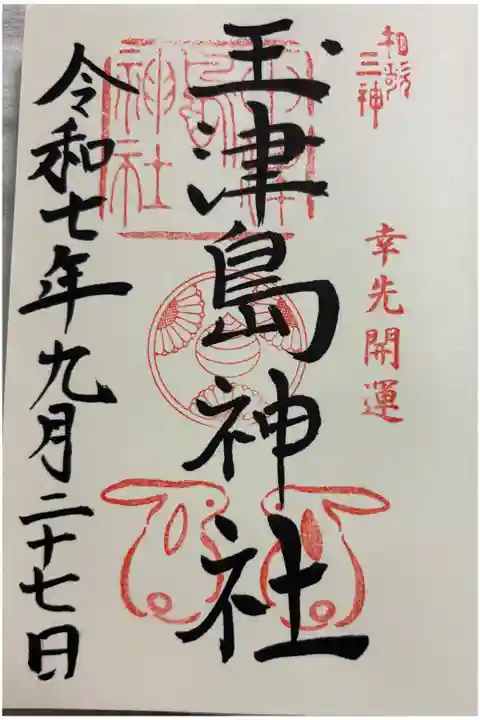 和歌
三神
幸先開運
玉津島神社
神社
令和七年九月二十七日